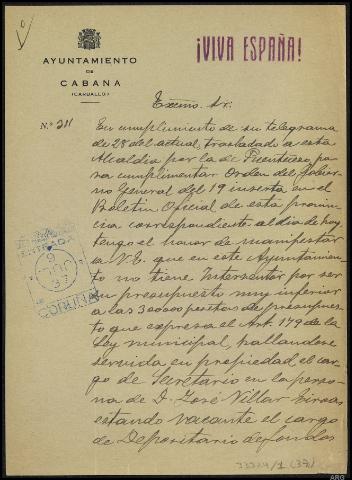 ¡VIVA ESPAÑA!
AYUNTAMIENTO
DE
CABANA
(CARBALLO)
N.º 211
Excmo. Sr:
En cumplimiento de su telegrama
de 28 del actual, trasladado a esta
Alcaldia por la de Puenteceso, pa
ra cumplimentar Orden del Gobier
no General del 19 inserta en el
Boletin Oficial de esta provin
cia correspondiente al dia de hoy,
tengo el honor de manifestar
a V.E. que en este Ayuntamien
to no tiene Interventor por ser
su presupuesto muy inferior
a las 300000 pesetas de presupues
to que expresa el Art. 179 de la
Ley municipal, hallandose
servida en propiedad el car
go de Secretario en la perso
na de D. José Villar
estando vacante el cargo
de Depositario de fondos
ENTRADA
CORUÑA
ARG